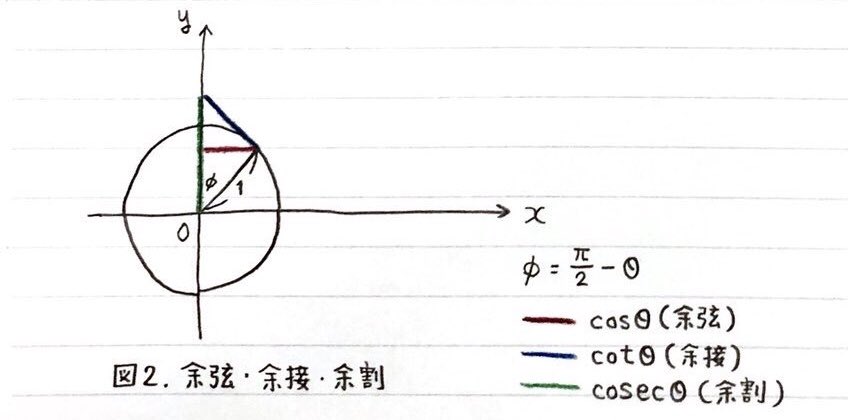 y
φ
1
0
x
φ = π/2 - θ
cosθ (余弦)
cotθ (余接)
cosecθ (余割)
図2. 余弦・余接・余割